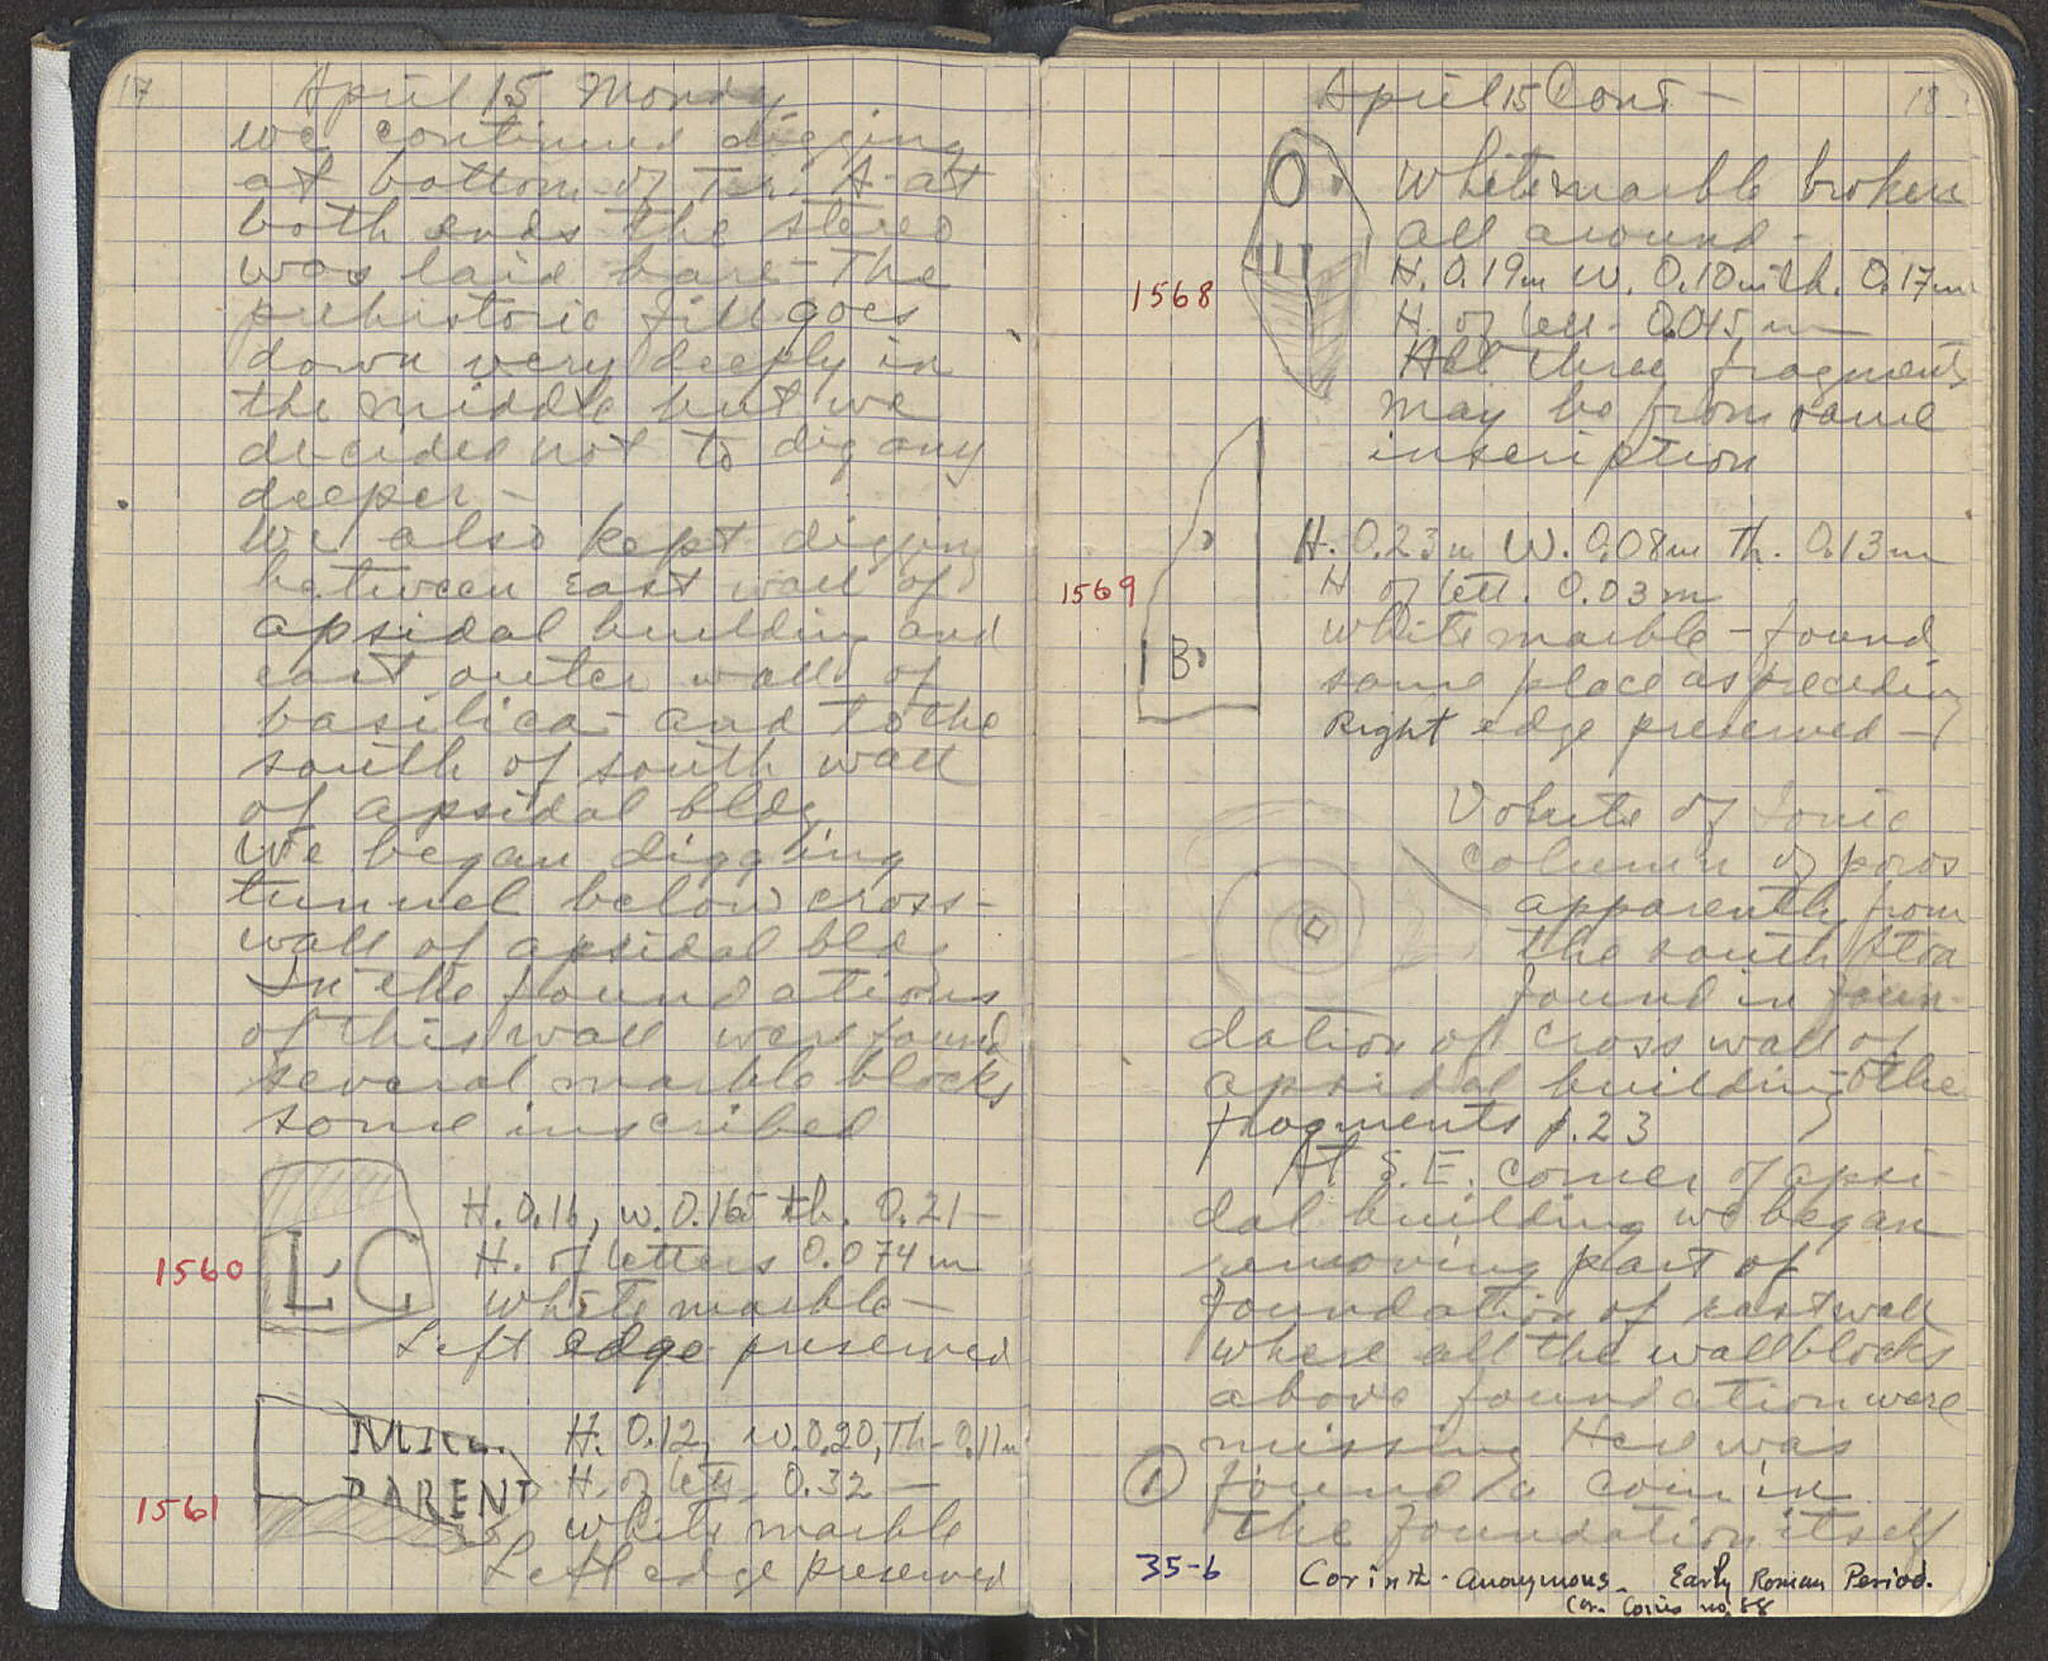 17
April 15 Monday
we continued digging
at bottom of Tr. A - at
both ends the stereo
was laid bare - The
prehistoric fill goes
down very deeply in
the middle but we
decided not to dig any
deeper -
We also kept digging
between East wall of
apsidal building and
east outer wall of
basilica - and to the
south of south wall
of apsidal bldg
We began digging
tunnel below cross-
wall of apsidal bldg
In the foundations
of this wall were found
several marble blocks
some inscribed
H. 0.16, w. 0.165 th. 0.21 -
1560
L'C
H. of letters 0.074 m
white marble -
Left edge preserved
H. 0.12, w. 0.20, Th. 0.11 m
PARENT
H. of lett. 0.32 -
1561
white marble
Left edge preserved
April 15 Cont -
18
O
White marble broken
all around -
H. 0.19m W. 0.10m th. 0.17m
1568
H. of lett. 0.045 m
All three fragments
may be from same
inscription
H. 0.23m W. 0.08m Th. 0.13m
1569
H of lett. 0.03 m
white marble - found
B
same place as preceding
Right edge preserved -
Volute of Ionic
column of poros
apparently from
the south Stoa
found in foun-
dation of cross wall of
apsidal building Othe
fragments p. 23
At S.E. corner of apsi-
dal building we began
removing part of
foundation of east wall
where all the wallblocks
above foundation were
missing Here was
1 found a coin in
the foundation itself
35-6
Corinth - Anonymous - Early Roman Period.
Cor. Coins no. 88